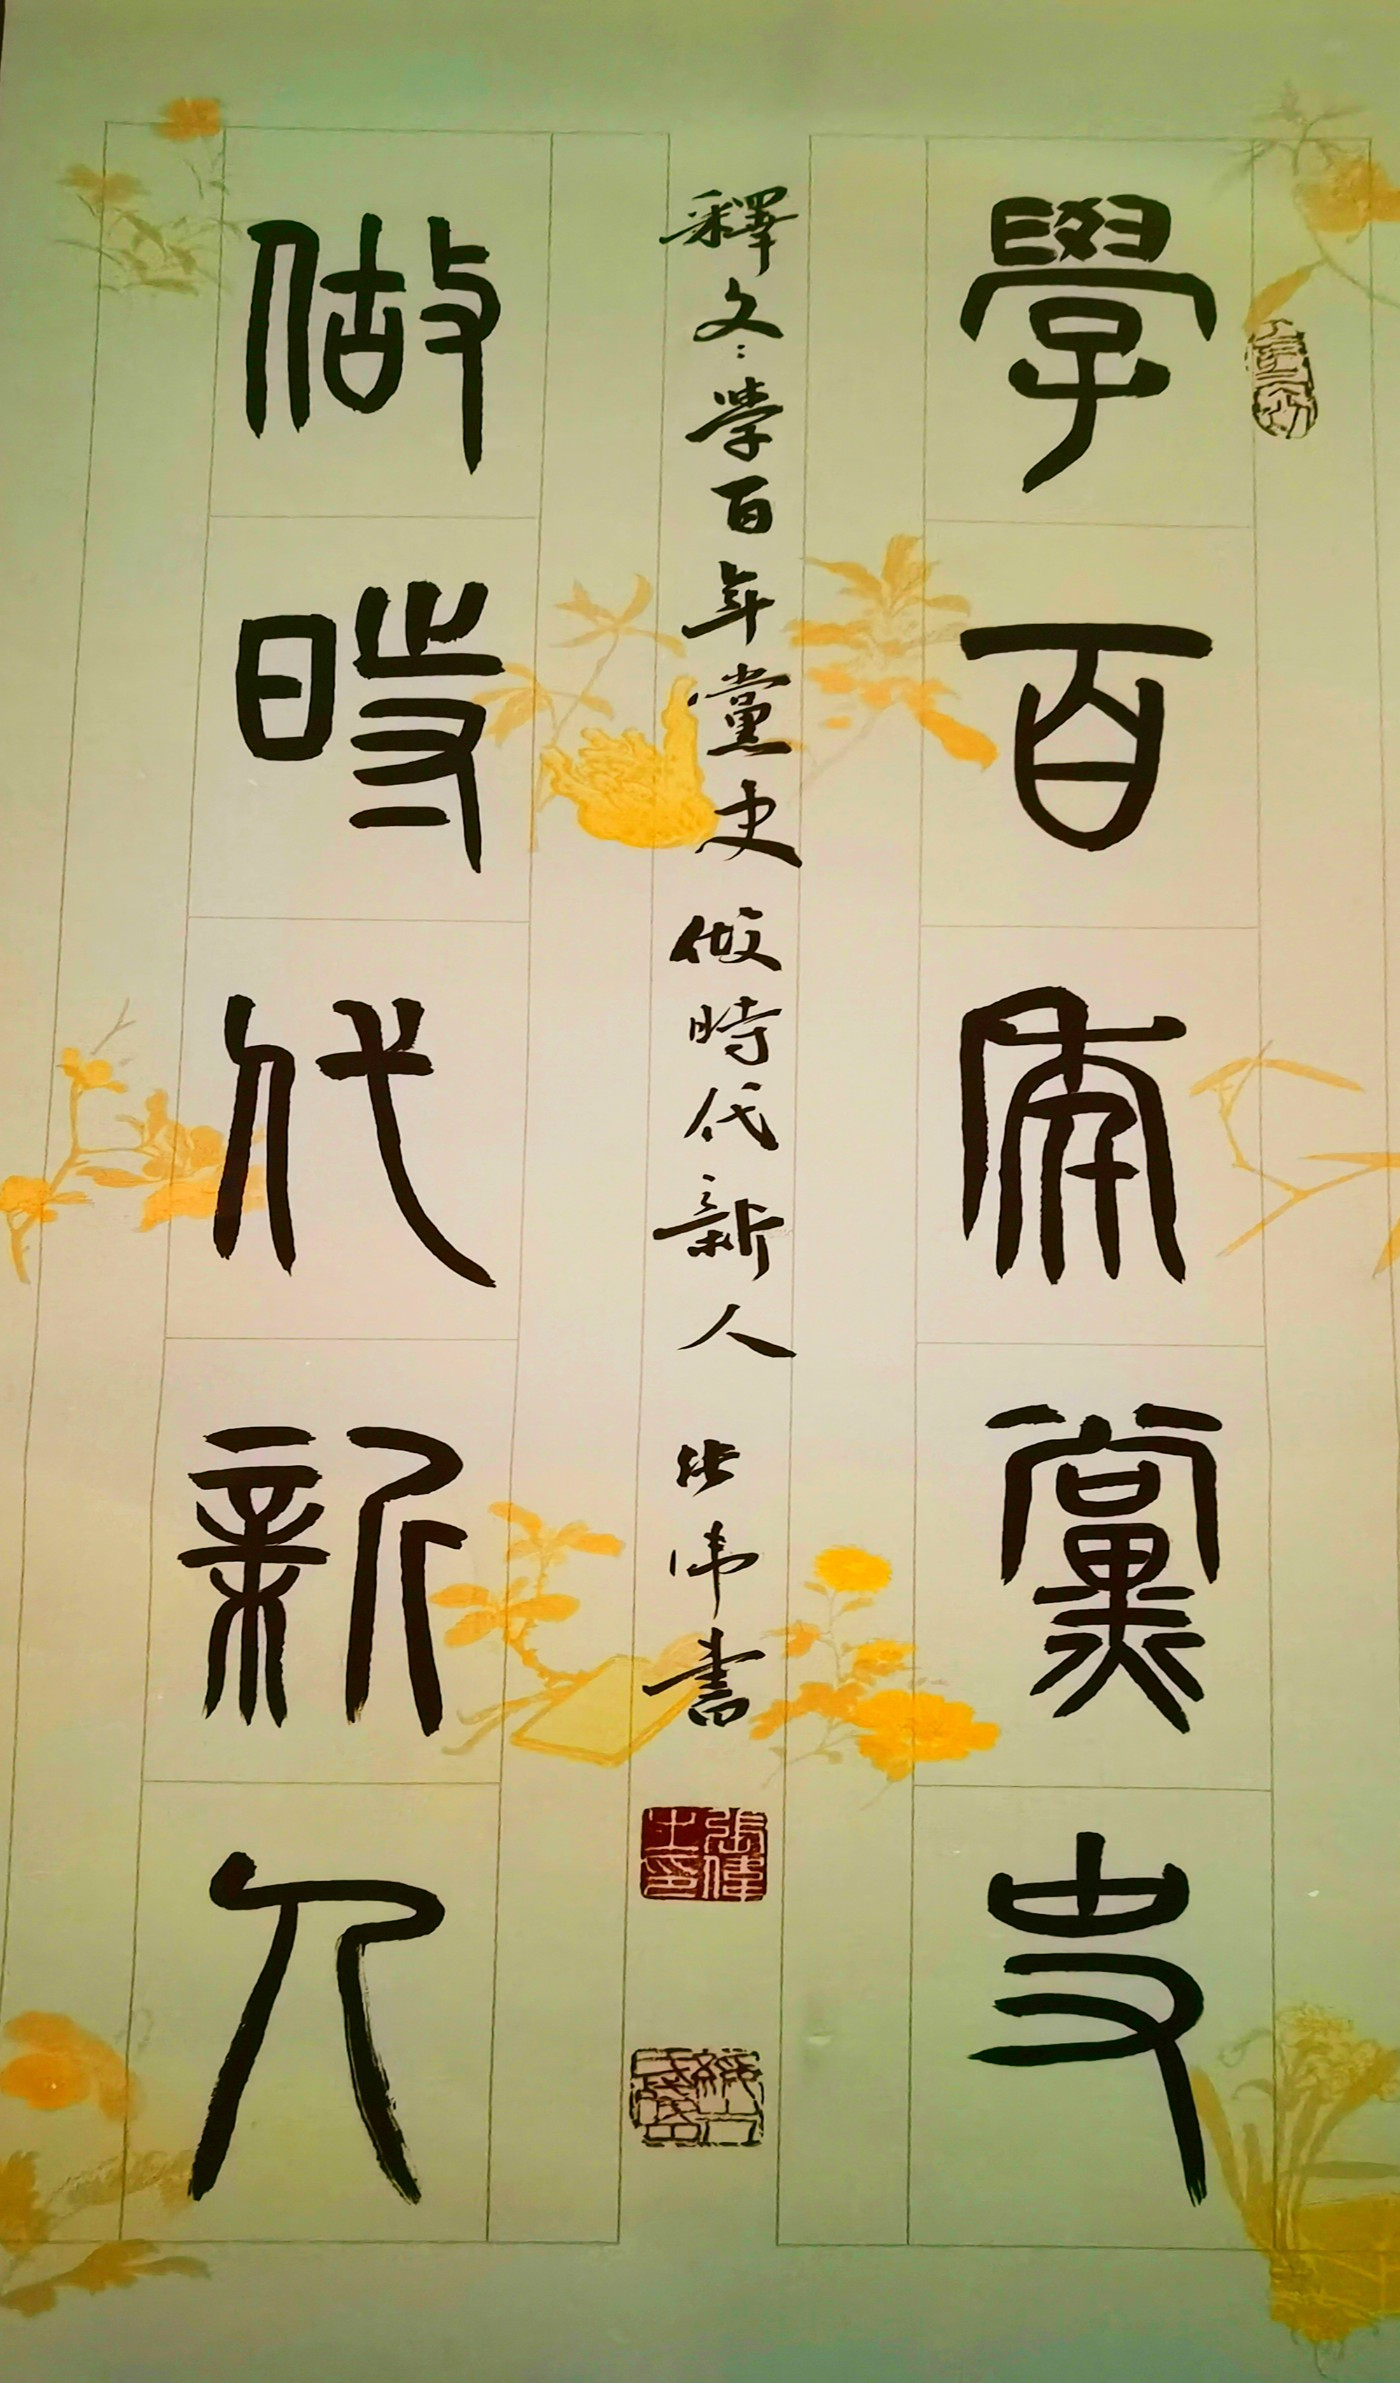 學百年黨史
釋文：學百年黨史 做時代新人 張偉書
張偉之印
做時代新人